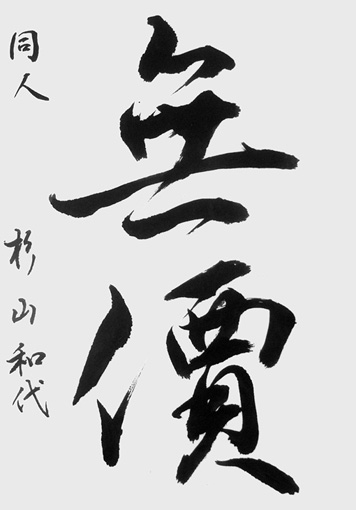 無價
同人 杉山和代